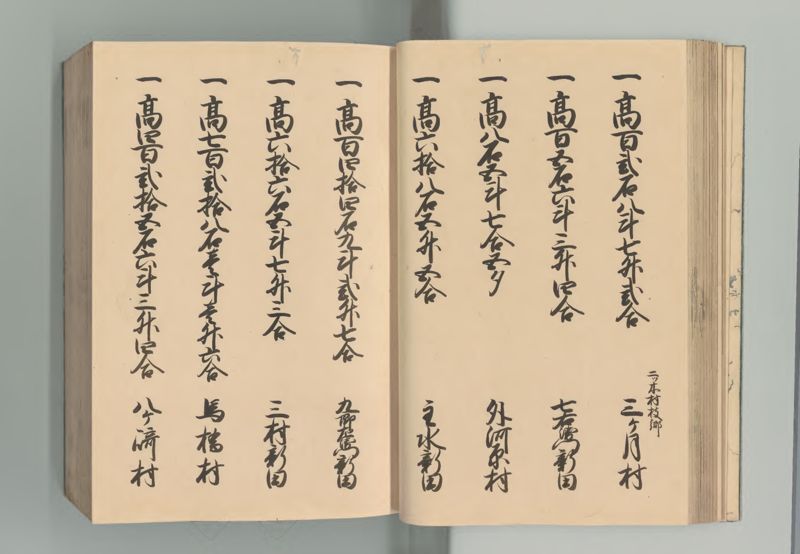 一高百弐石八斗七升弐合
二ツ木村枝郷
三ケ月村
一高百五石六斗三升四合
七右衛門新田
一高八石五斗七合五夕
外河原村
一高六拾八石五升五合
主水新田
一高百四拾四石九斗弐升七合
九郎左衛門新田
一高六拾六石五斗七升三合
三村新田
一高七百弐拾八石壱斗壱升六合
馬橋村
一高四百弐拾五石六斗三升四合
八ケ崎村